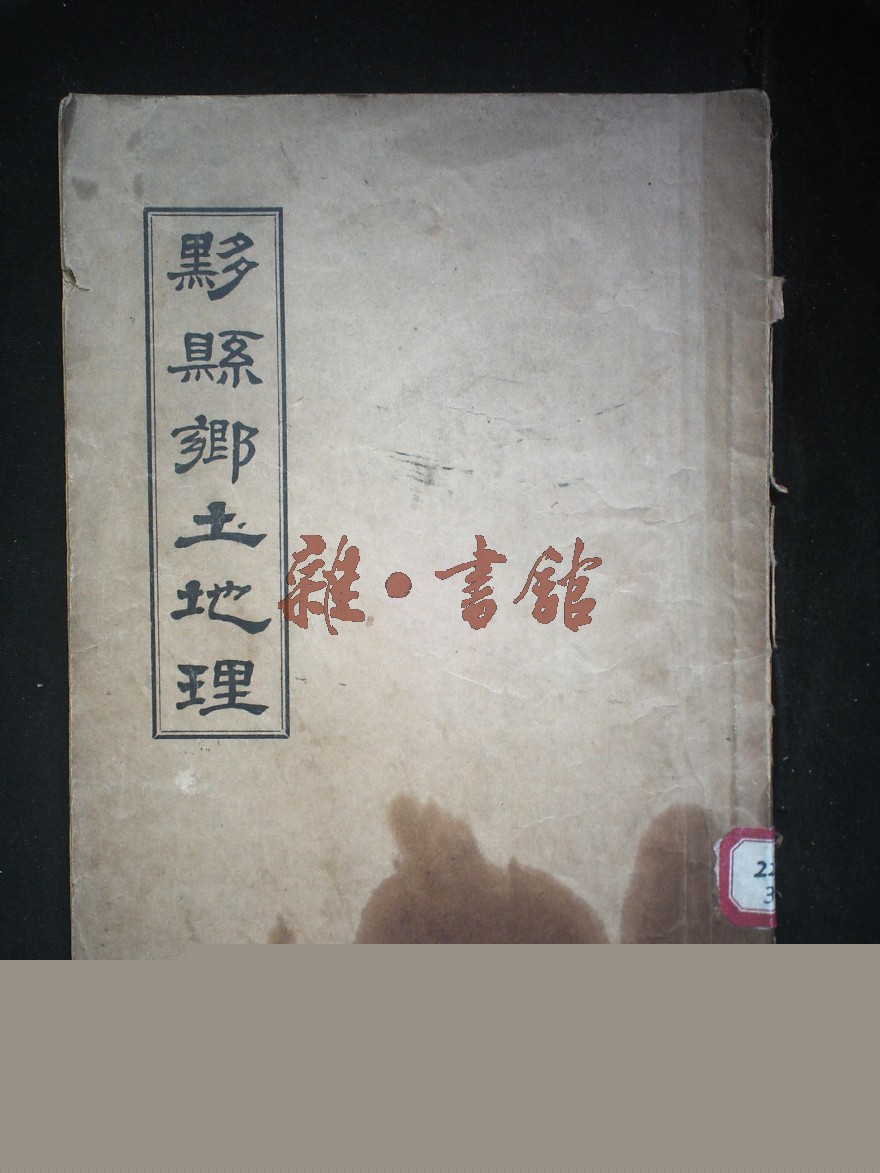 黟縣鄉土地理
雜·書館
22
3